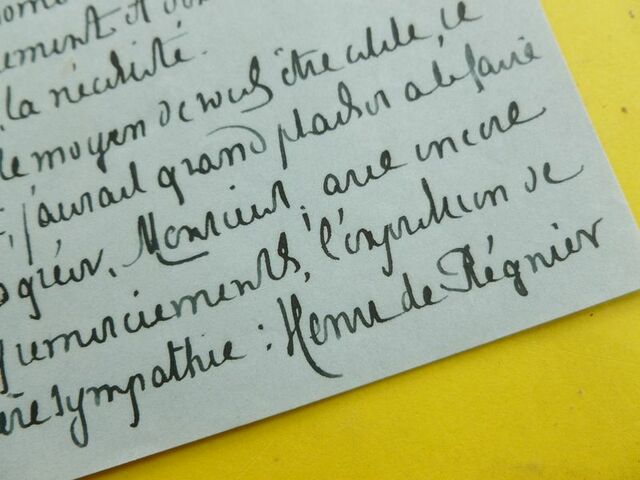 la nécessité.
le moyen de vous être utile, ce
j'aurai grand plaisir à le faire
Monsieur, avec encore
remerciements, l'expression de
sympathie : Henri de Régnier